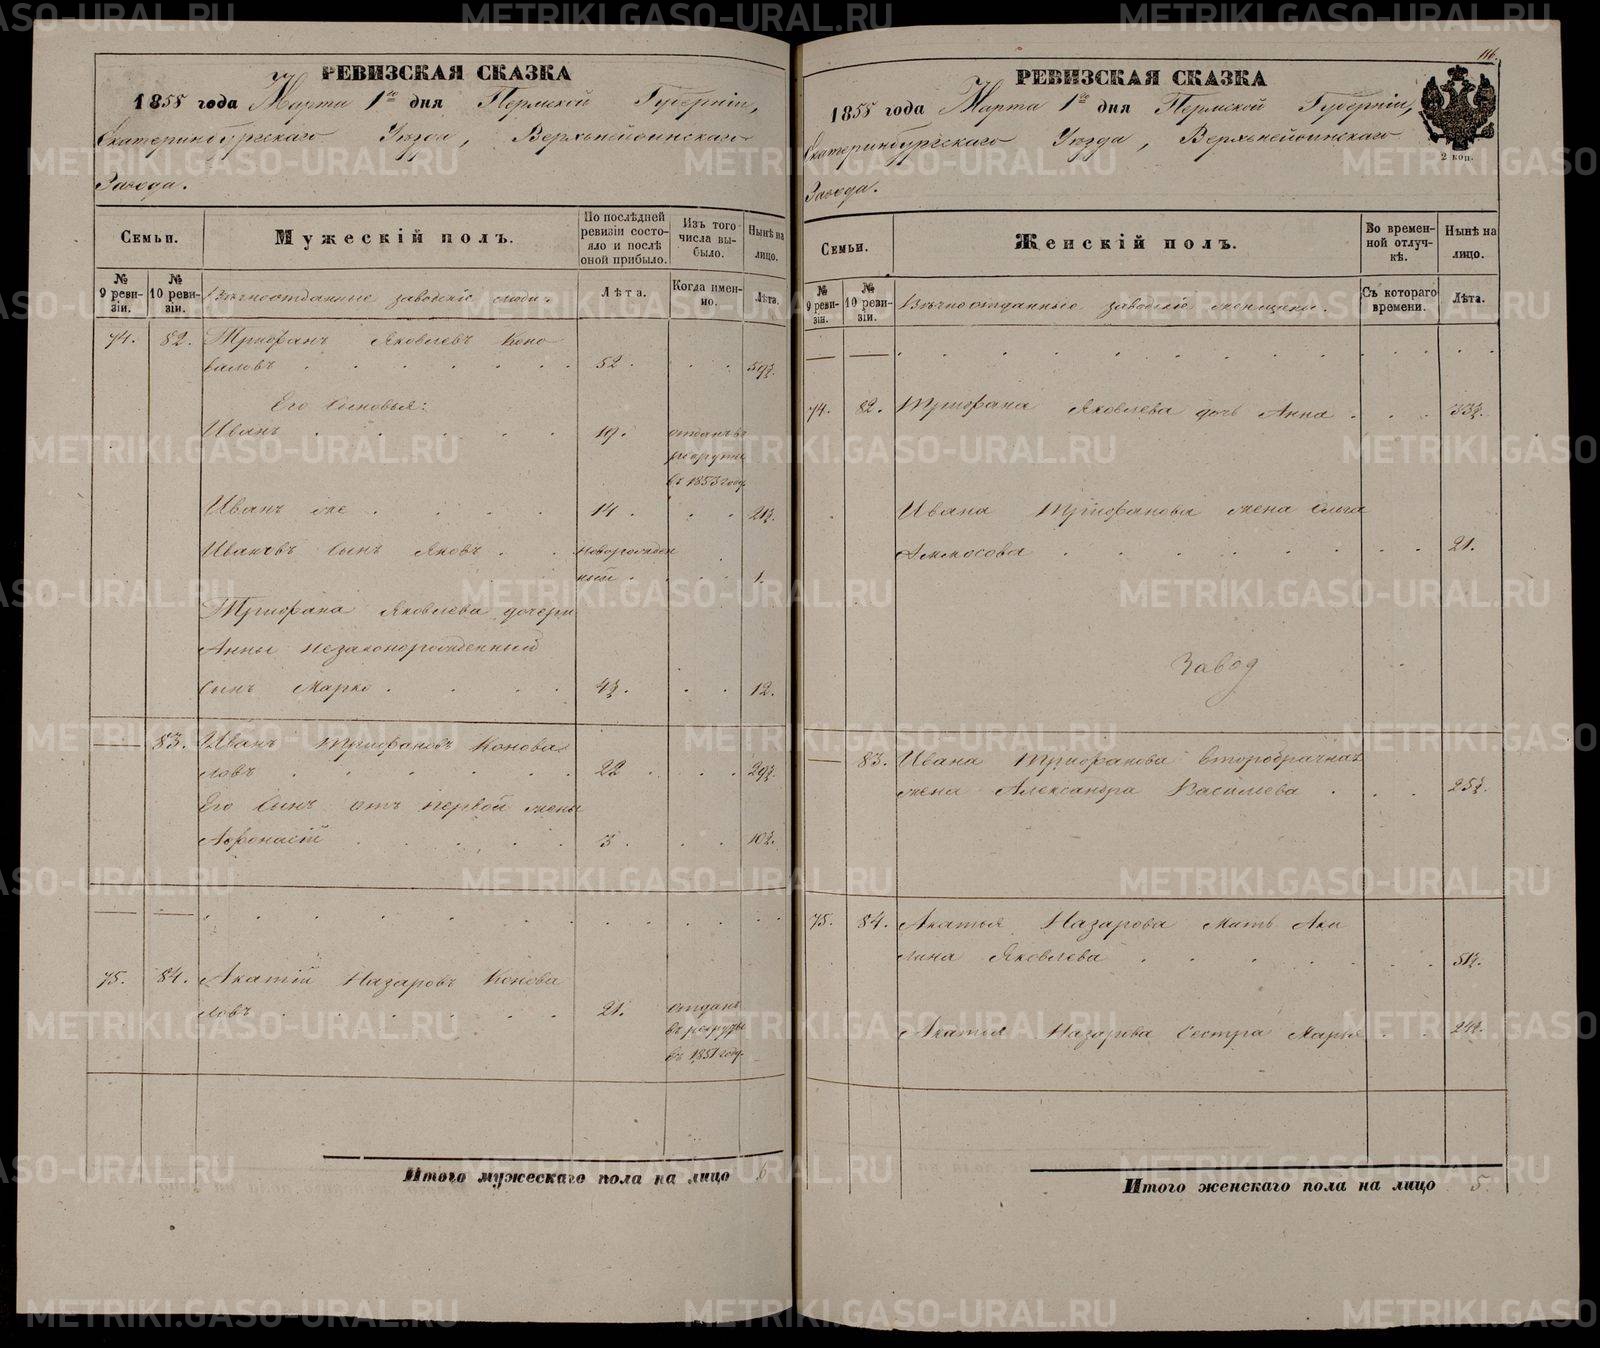 РЕВИЗСКАЯ СКАЗКА
1855 года Марта 1го дня Пермской Губернiи,
Екатеринбургскаго Уѣзда, Верхънейвинскаго
Завода.
Семьи.
Мужескiй полъ.
По послѣдней ревизiи состояло и послѣ оной прибыло.
Изъ того числа выбыло.
Нынѣ на лицо.
№ 9 ревизiи.
№ 10 ревизiи.
Вѣчноотданные заводскiе люди.
Лѣта.
Когда именно.
Лѣта.
74. 82. Трифанъ Яковлевъ Коно
валовъ 52. 59½.
Его Сыновья:
Иванъ 19. отданъ въ
рекруты
въ 1853 году.
Иванъ же 14. 21½.
Ивановъ Сынъ Яковъ новорожден
ный. 1.
Трифана Яковлева дочери
Анны незаконорожденный
сынъ Марко 4½. 12.
83. Иванъ Трифановъ Конова
ловъ 22. 29½.
Его Сынъ отъ первой жены
Афонасiй 3. 10½.
75. 84. Акатiй Назаровъ Конова
ловъ 21. отданъ
въ рекруты
въ 1851 году.
Итого мужескаго пола на лицо 6
116.
РЕВИЗСКАЯ СКАЗКА
1855 года Марта 1го дня Пермской Губернiи,
Екатеринбургскаго Уѣзда, Верхънейвинскаго
Завода.
2 коп.
Семьи.
Женскiй полъ.
Во временной отлучкѣ.
Нынѣ на лицо.
№ 9 ревизiи.
№ 10 ревизiи.
Вѣчноотданные заводскiе женщины.
Съ котораго времени.
Лѣта.
74. 82. Трифана Яковлева дочь Анна 33½.
Ивана Трифанова жена Ольга
Аммосова 21.
Завод
83. Ивана Трифанова второбрачная
жена Александра Васильева 25½.
75. 84. Акатья Назарова Мать Аку
лина Яковлева 51½.
Акатья Назарова Сестра Марья 24½.
Итого женскаго пола на лицо 5.
METRIKI.GASO-URAL.RU